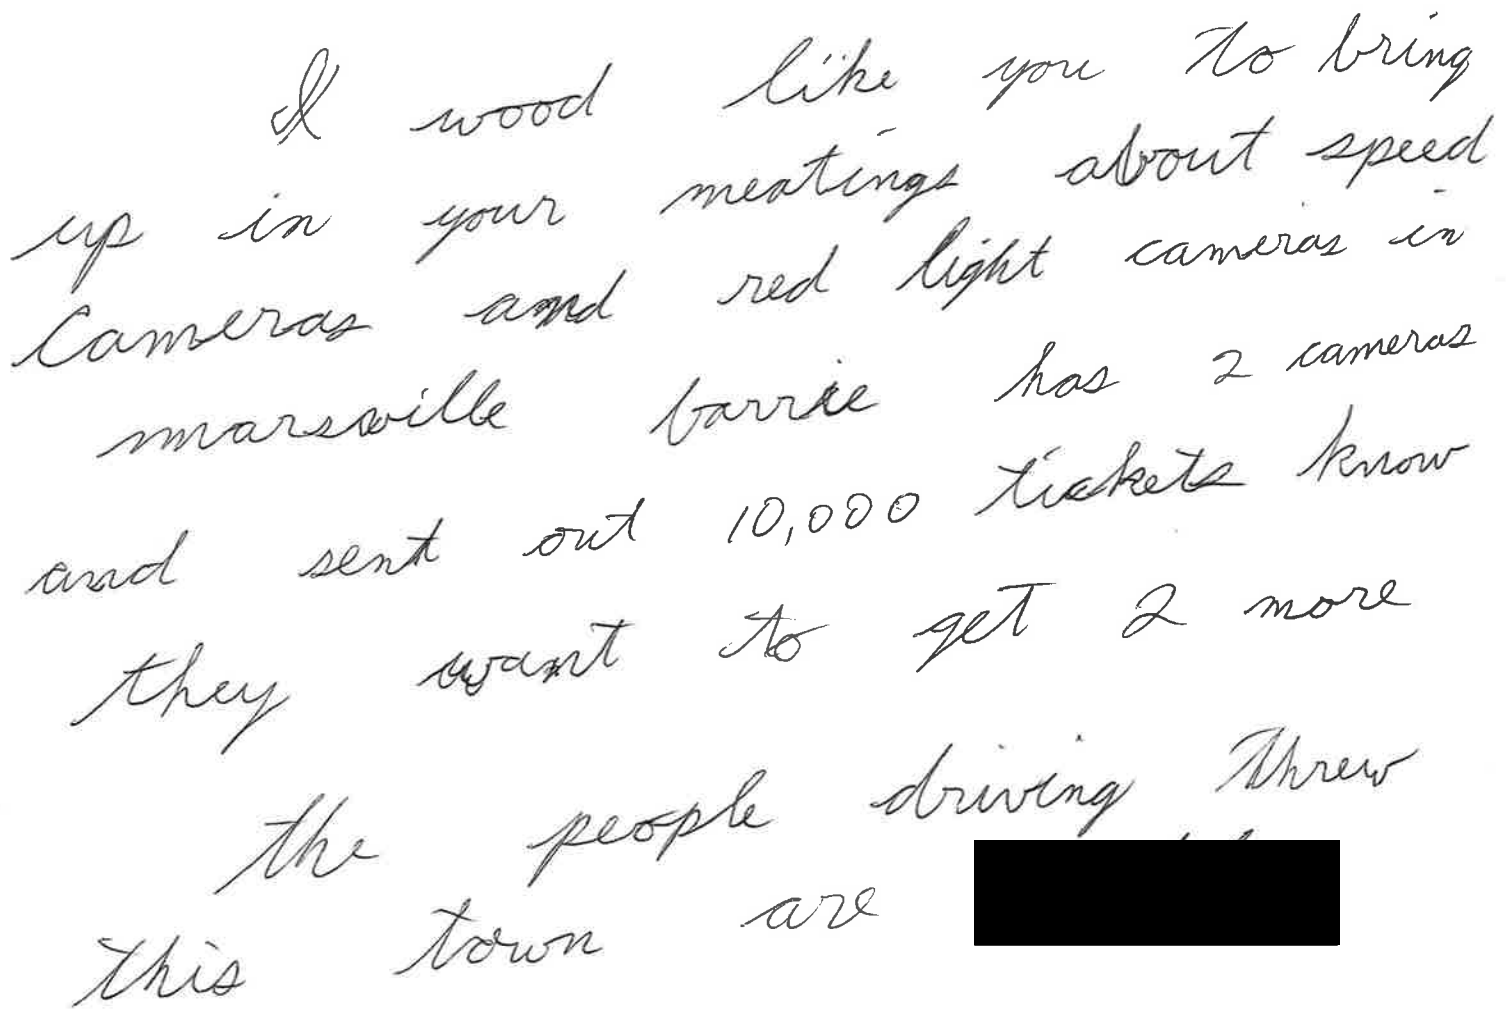 I wood like you to bring
up in your meatings about speed
Cameras and red light cameras in
marsville barrie has 2 cameras
and sent out 10,000 tickets know
they want to get 2 more
the people driving threw
this town are